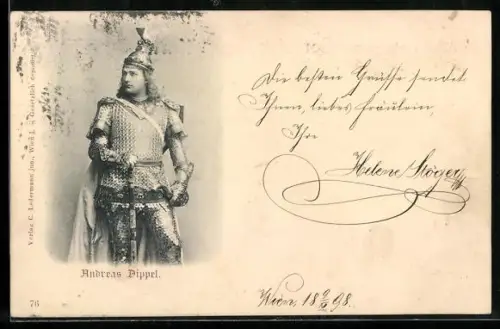 Die besten Grüße sendet
Ihnen, liebes Fräulein,
Ihre
Helene Stöger
Wien 18 6/2 98.
Andreas Dippel.
76
Verlag C. Ledermann jun., Wien I. Gesetzlich